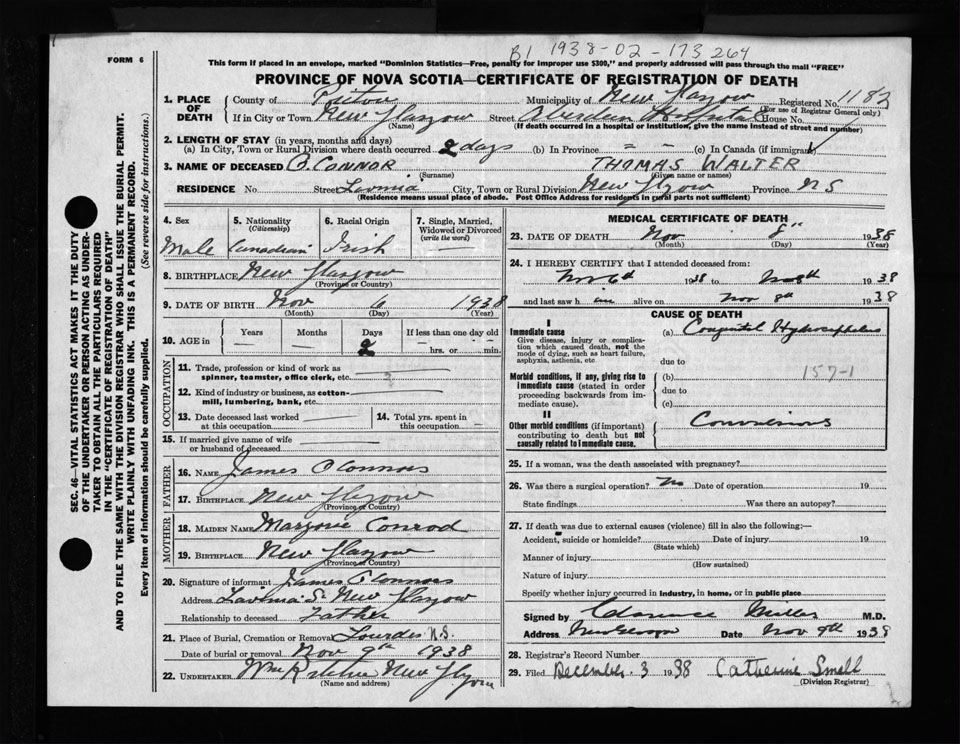 B1 1938-02-173264
FORM 6
This form if placed in an envelope, marked "Dominion Statistics—Free, penalty for improper use $300," and properly addressed will pass through the mail "FREE"
PROVINCE OF NOVA SCOTIA—CERTIFICATE OF REGISTRATION OF DEATH
SEC. 46—VITAL STATISTICS ACT MAKES IT THE DUTY
OF THE UNDERTAKER OR PERSON ACTING AS UNDER-
TAKER TO OBTAIN ALL THE PARTICULARS REQUIRED
IN THE "CERTIFICATE OF REGISTRATION OF DEATH"
AND TO FILE THE SAME WITH THE DIVISION REGISTRAR WHO SHALL ISSUE THE BURIAL PERMIT.
WRITE PLAINLY WITH UNFADING INK. THIS IS A PERMANENT RECORD.
Every item of information should be carefully supplied. (See reverse side for instructions.)
1. PLACE OF DEATH
County of Pictou Municipality of New Glasgow Registered No. 1182
(For use of Registrar General only)
If in City or Town New Glasgow Street Aberdeen Hospital House No.
(Name) (If death occurred in a hospital or institution, give the name instead of street and number)
2. LENGTH OF STAY (in years, months and days)
(a) In City, Town or Rural Division where death occurred 2 days (b) In Province " " (c) In Canada (if immigrant)
3. NAME OF DECEASED O'CONNOR THOMAS WALTER
(Surname) (Given name or names)
RESIDENCE No. Street Lavinia City, Town or Rural Division New Glasgow Province N S
(Residence means usual place of abode. Post Office Address for residents in rural parts not sufficient)
4. Sex
Male
5. Nationality (Citizenship)
Canadian
6. Racial Origin
Irish
7. Single, Married, Widowed or Divorced (write the word)
8. BIRTHPLACE New Glasgow
(Province or Country)
9. DATE OF BIRTH Nov 6 1938
(Month) (Day) (Year)
10. AGE in Years — Months — Days 2 If less than one day old
hrs. or min.
OCCUPATION
11. Trade, profession or kind of work as spinner, teamster, office clerk, etc.
12. Kind of industry or business, as cotton-mill, lumbering, bank, etc.
13. Date deceased last worked at this occupation
14. Total yrs. spent in this occupation
15. If married give name of wife or husband of deceased
FATHER
16. NAME James O'Connors
17. BIRTHPLACE New Glasgow
(Province or Country)
MOTHER
18. MAIDEN NAME Marjorie Conrod
19. BIRTHPLACE New Glasgow
(Province or Country)
20. Signature of informant James O'Connors
Address Lavinia St New Glasgow
Relationship to deceased Father
21. Place of Burial, Cremation or Removal Lourdes N.S.
Date of burial or removal Nov 9th 1938
22. UNDERTAKER New Glasgow
(Name and address)
MEDICAL CERTIFICATE OF DEATH
23. DATE OF DEATH Nov 8" 1938
(Month) (Day) (Year)
24. I HEREBY CERTIFY that I attended deceased from:
Nov 6th 1938 to Nov 8th 1938
and last saw h im alive on Nov 8th 1938
CAUSE OF DEATH
I
Immediate cause
Give disease, injury or complication which caused death, not the mode of dying, such as heart failure, asphyxia, asthenia, etc.
(a) Congenital Hydrocephalus
due to
Morbid conditions, if any, giving rise to immediate cause (stated in order proceeding backwards from immediate cause).
(b) 157-1
due to
(c)
II
Other morbid conditions (if important) contributing to death but not causally related to immediate cause.
Convulsions
25. If a woman, was the death associated with pregnancy?
26. Was there a surgical operation? No Date of operation 19
State findings Was there an autopsy?
27. If death was due to external causes (violence) fill in also the following:—
Accident, suicide or homicide? Date of injury 19
(State which)
Manner of injury
(How sustained)
Nature of injury
Specify whether injury occurred in industry, in home, or in public place
Signed by Clarence Miller M.D.
Address New Glasgow Date Nov 9th 1938
28. Registrar's Record Number
29. Filed December 3 1938 Catherine Small
(Division Registrar)